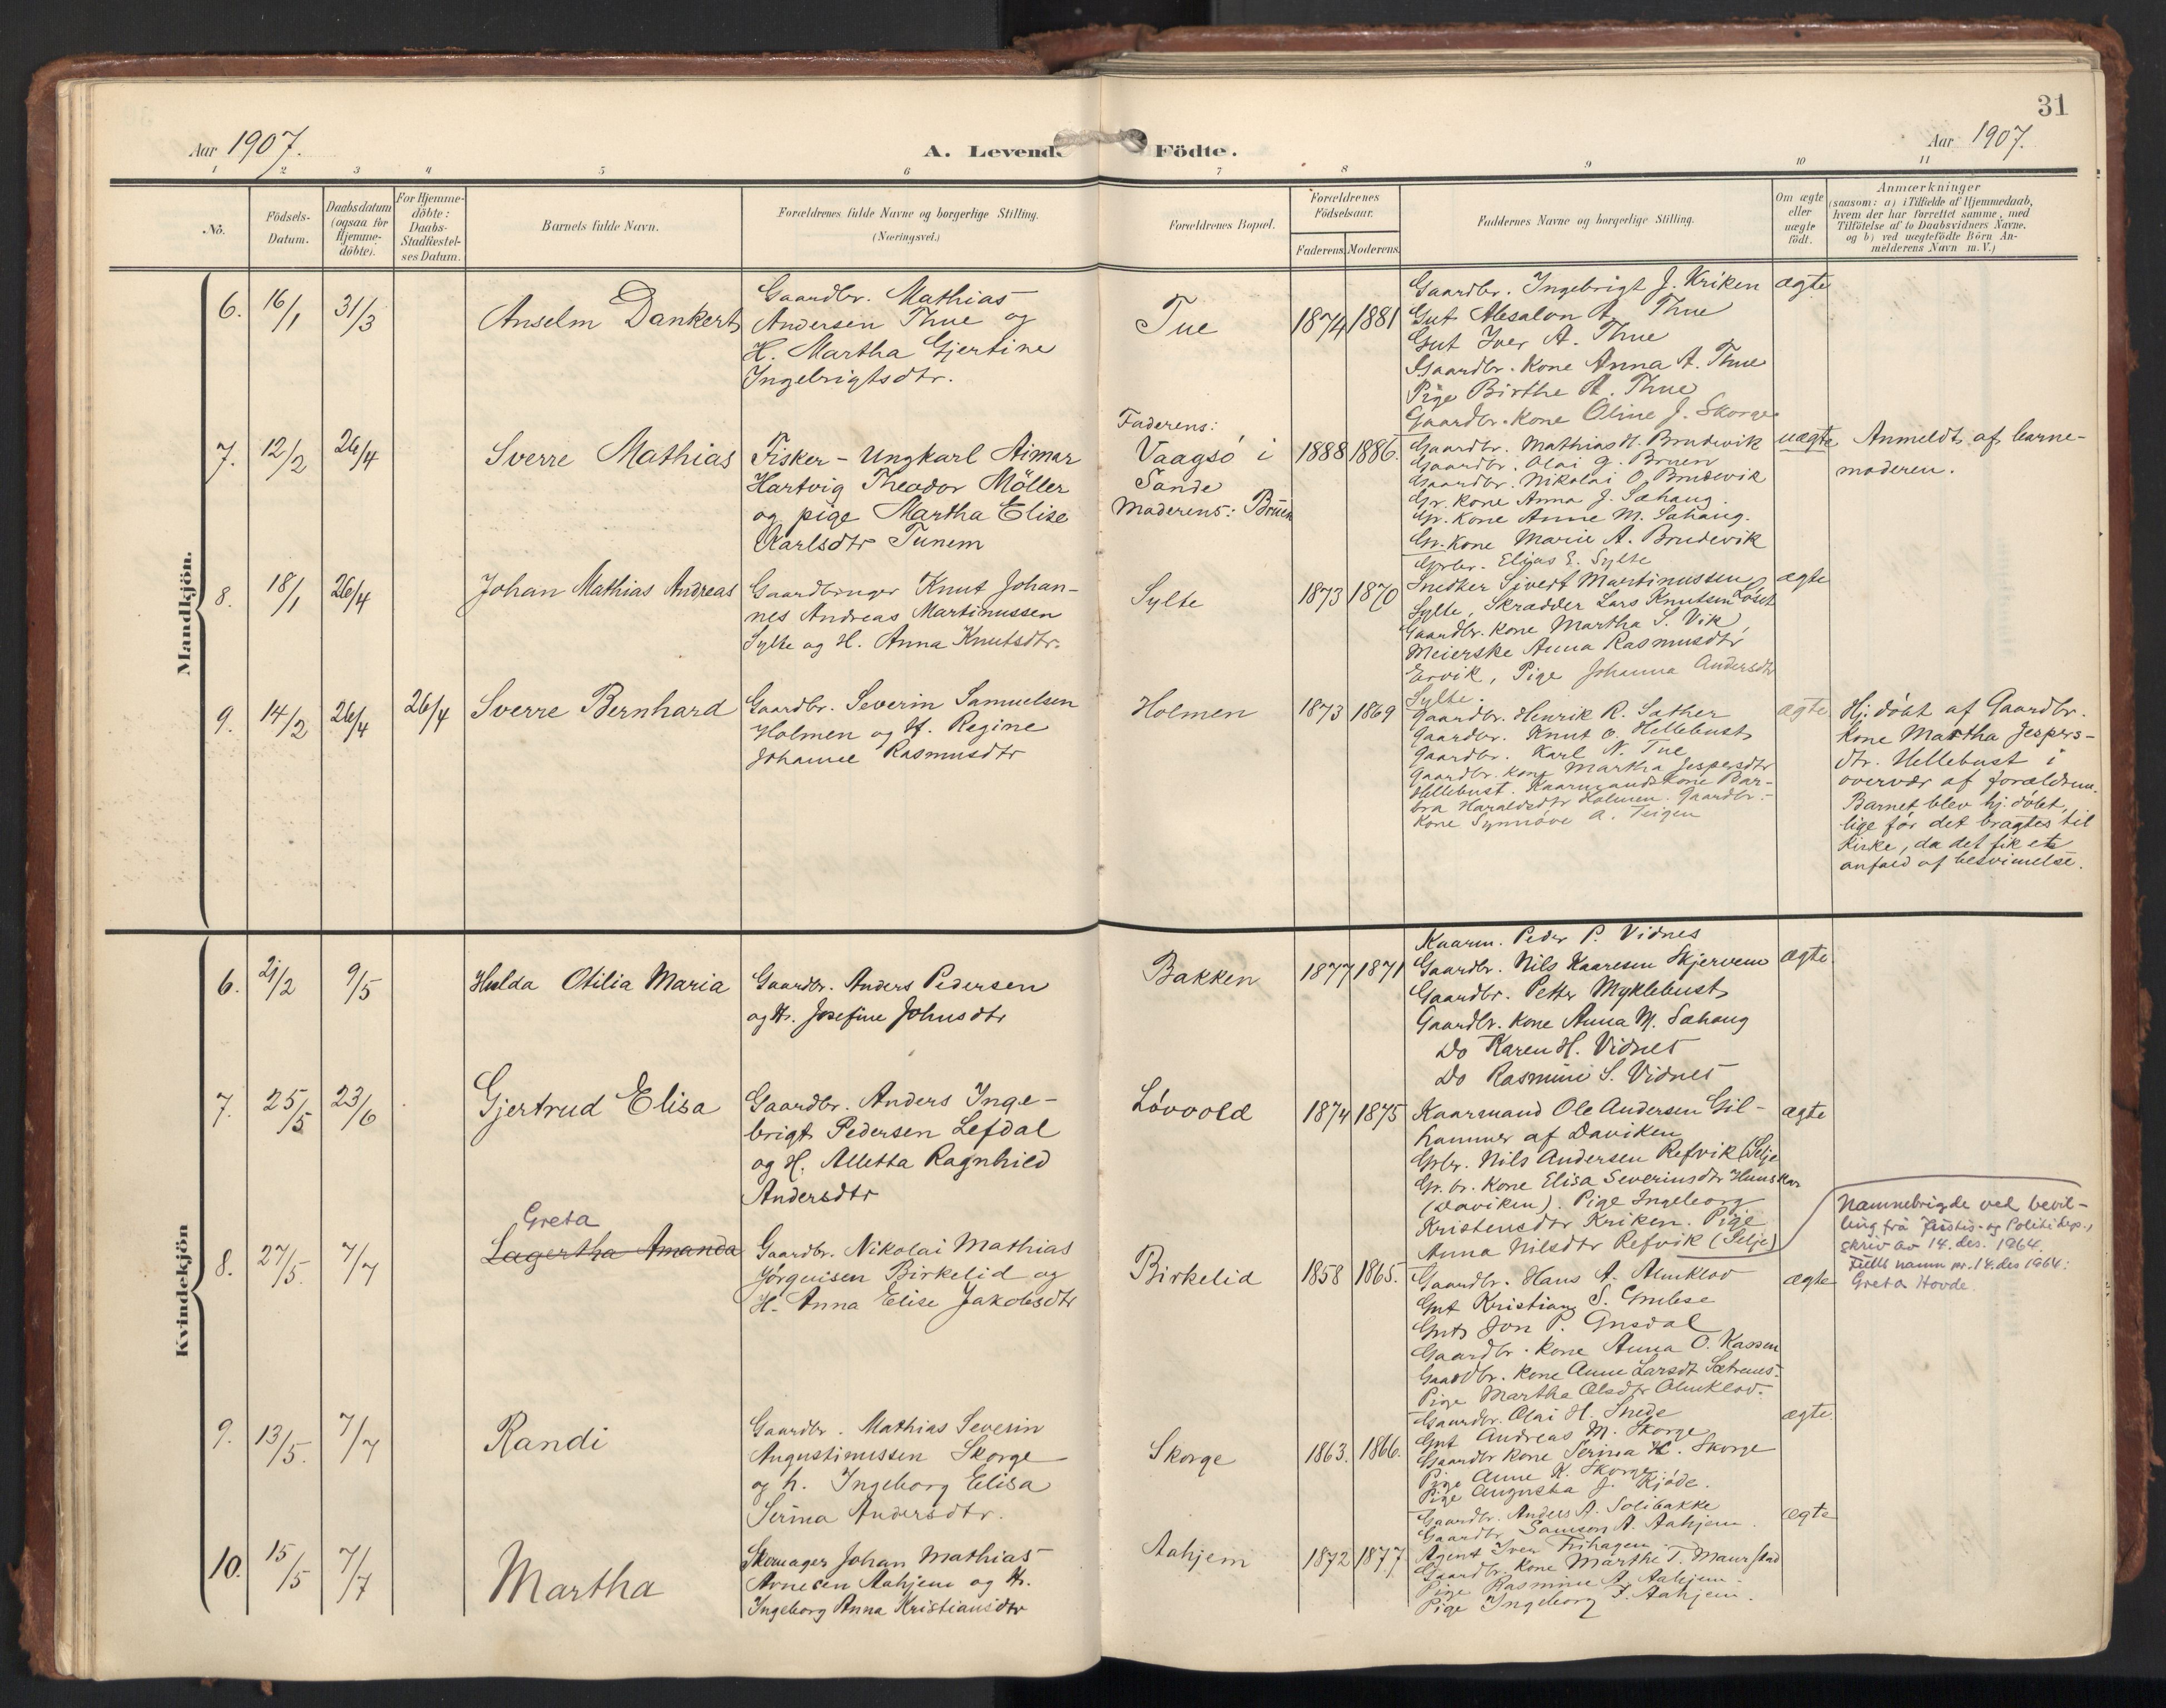 31
Aar 1907.
A. Levende Födte.
Aar 1907.
1 2 3 4 5 6 7 8 9 10 11
No.
Födsels-Datum.
Daabsdatum (ogsaa for Hjemme-döbte).
For Hjemme-döbte: Daabs-Stadfæstel-ses Datum.
Barnets fulde Navn.
Forældrenes fulde Navne og borgerlige Stilling.
(Næringsvei.)
Forældrenes Bopæl.
Forældrenes Födselsaar.
Faderens. Moderens.
Faddernes Navne og borgerlige Stilling.
Om ægte eller uægte födt.
Anmærkninger
(saasom: a) i Tilfælde af Hjemmedaab,
hvem der har forrettet samme, med
Tilföielse af to Daabsvidners Navne,
og b) ved uægtefödte Börn An-
melderens Navn m. V.)
Mandkjön.
6. 16/1 31/3
Anselm Dankert
Gaardbr. Mathias
Andersen Thue og
H. Martha Gjertine
Ingebrigtsdtr.
Tue
1874 1881
Gaardbr. Ingebrigt J. Kriken
Gut Absalon A. Thue
Gut Iver A. Thue
Gaardbr. Kone Anna A. Thue
Pige Birthe A. Thue
Gaardbr. Kone Oline J. Skorge
ægte
7. 12/2 26/4
Sverre Mathias
Fisker - Ungkarl Aimar
Hartvig Theodor Möller
og pige Martha Elise
Karlsdtr Tunem
Faderens:
Vaagsö i
Sande
Moderens: Bruen
1888 1886.
Gaardbr. Mathias H. Brudevik
Gaardbr. Olai G. Bruen
Gaardbr. Nikolai O. Brudevik
Gr. Kone Anna J. Sæhaug.
Gr. Kone Anne M. Sahaug.
Gr. Kone Marie A. Brudevik
uægte
Anmeldt af barne-
moderen.
8. 18/1 26/4
Johan Mathias Andreas
Gaardbruger Knut Johan-
nes Andreas Martinussen
Sylte og H. Anna Knutsdtr.
Sylte
1873 1870
Grbr. Elias E. Sylte
Snedker Sivert Martinussen
Sylte, Skrædder Lars Knutsen Løset
Gaardbr. Kone Martha S. Vik,
Meierske Anna Rasmusdtr
Ervik, Pige Johanna Andersdtr
Sylte.
ægte
9. 14/2 26/4 26/4
Sverre Bernhard
Gaardbr. Severin Samuelsen
Holmen og H. Regine
Johanne Rasmusdtr
Holmen
1873 1869
Gaardbr. Henrik R. Sather
Gaardbr. Knut O. Hellebust
Gaardbr. Karl N. Tue
Gaardbr. Kone Martha Jespersdtr
Hellebust. Kaarmands Kone Bar-
bra Haraldsdtr Holmen. Gaardbr.-
Kone Synnöve A. Teigen
ægte
Hj. döbt af Gaardbr.
Kone Martha Jespers-
dtr. Hellebust i
overvær af forældren.
Barnet blev hj. döbt,
lige för det bragtes til
Kirke, da det fik et
anfald af besvimelse.
Kvindekjön
6. 21/2 9/5
Hulda Otilia Maria
Gaardbr. Anders Pedersen
og H. Josefine Johnsdtr
Bakken
1877 1871
Kaarm. Peder P. Vidnes
Gaardbr. Nils Kaaresen Skjervem
Gaardbr. Petter Myklebust
Gaardbr. Kone Anna M. Sæhaug
Do Karen H. Vidnes
Do Rasmine S. Vidnes
ægte.
7. 25/5 23/6
Gjertrud Elisa
Gaardbr. Anders Inge-
brigt Pedersen Lefdal
og H. Alletta Ragnhild
Andersdtr
Lövvold
1874 1875
Kaarmand Ole Andersen Gil-
hammer af Daviken
Grbr. Nils Andersen Refvik (Selje
Gr. br. Kone Elisa Severinsdtr Humskar
(Daviken). Pige Ingeborg
Kristensdtr Kriken. Pige
Anna Nilsdtr Refvik (Selje)
ægte
8. 27/5. 7/7
Greta
Lagertha Amanda
Gaardbr. Nikolai Mathias
Jörgensen Birkelid og
H. Anna Elise Jakobsdtr
Birkelid
1858 1865.
Gaardbr. Hans A. Almklov
Gut Kristian S. Grubse
Gut Jon P. Gusdal
Gaardbr. Kone Anna O. Kassen
Gaardbr. Kone Anne Larsdt Sætrenes.
Pige Martha Olsdtr Almklov.
ægte
Namnebrigde ved bevil-
ling frå Justis- og Politidep.,
skriv av 14. des. 1964.
Fullt namn pr. 14. des 1964:
Greta Hovde.
9. 13/5. 7/7
Randi
Gaardbr. Mathias Severin
Augustinussen Skorge
og h. Ingeborg Elisa
Serina Andersdtr.
Skorge
1863. 1866.
Gaardbr. Olai H. Snede
Gut Andreas M. Skorge
Gaardbr Kone Serina H. Skorge
Pige Anne K. Skorge
Pige Augusta J. Kjöde.
ægte.
10. 15/5 7/7
Martha
Skomager Johan Mathias
Arnesen Aahjem og H.
Ingeborg Anna Kristiansdtr
Aahjem
1872 1877
Gaardbr. Anders A. Solibakke
Gaardbr. Samson A. Aahjem.
Agent Iver Frihagen.
Gaardbr. Kone Marthe T. Maurstad
Pige Rasmine A. Aahjem.
Pige Ingeborg J. Aahjem.
ægte